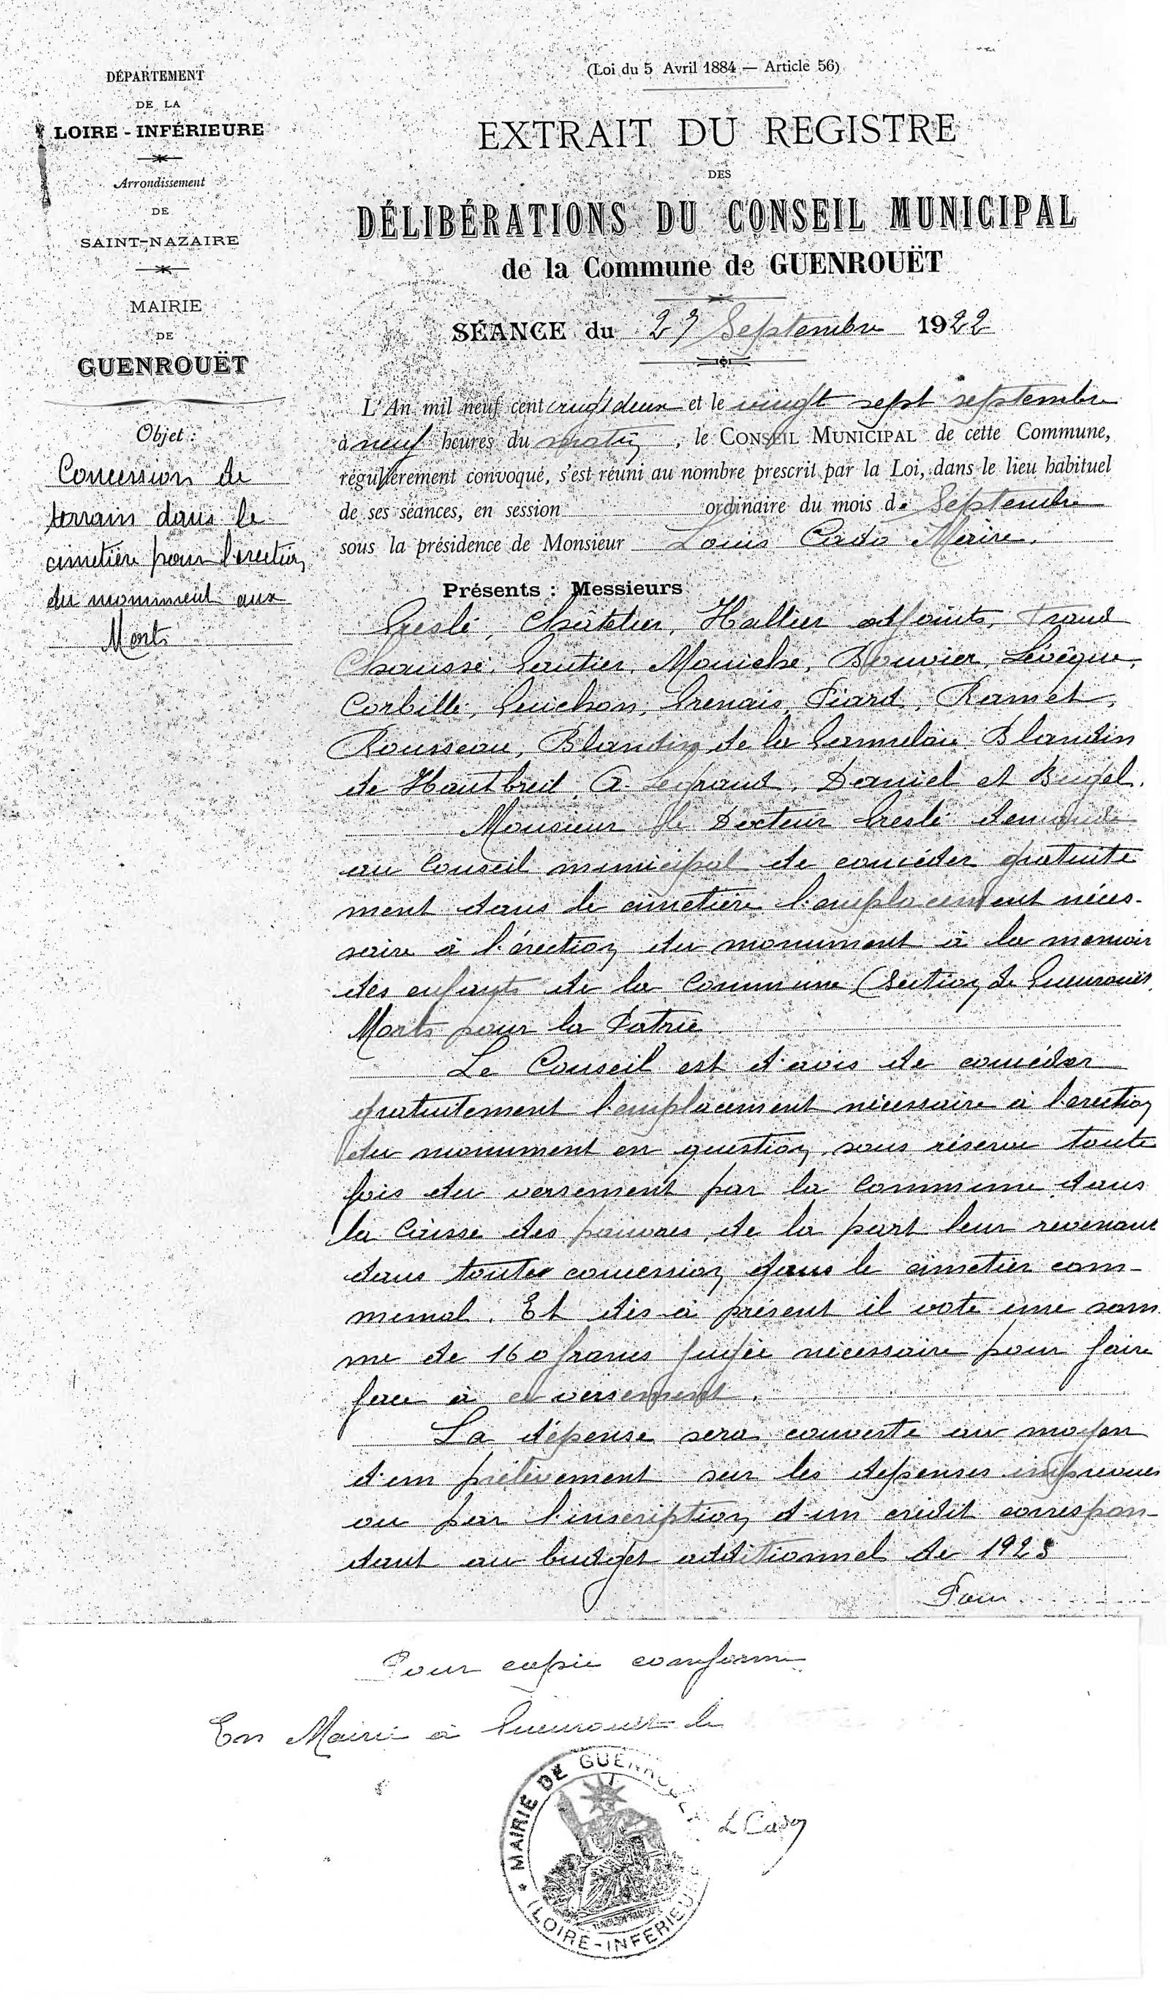 DÉPARTEMENT
DE LA
LOIRE-INFÉRIEURE
Arrondissement
DE
SAINT-NAZAIRE
MAIRIE
DE
GUENROUËT
Objet :
Concession de
terrain dans le
cimetière pour l'érection
du monument aux
Morts
(Loi du 5 Avril 1884 — Article 56)
EXTRAIT DU REGISTRE
DES
DÉLIBÉRATIONS DU CONSEIL MUNICIPAL
de la Commune de GUENROUËT
SÉANCE du 27 Septembre 1922
L'An mil neuf cent vingt deux et le vingt sept septembre
à neuf heures du matin, le CONSEIL MUNICIPAL de cette Commune,
régulièrement convoqué, s'est réuni au nombre prescrit par la Loi, dans le lieu habituel
de ses séances, en session ordinaire du mois de Septembre
sous la présidence de Monsieur Louis Cado Maire.
Présents : Messieurs
Greslé, Châtelier, Hallier adjoints,
Chaussé, Gautier, Bouvier, Lévêque,
Corbillé, Guichon, Grenais, Piard, Ramet,
Rousseau, Blandin de la Blandin
de Hautbreil, A. Legrand, Daniel et Bugel.
Monsieur le Docteur Greslé demande
au Conseil municipal de concéder gratuite
ment dans le cimetière l'emplacement néces-
saire à l'érection du monument à la memoir
des enfants de la Commune (Section de Guenrouët
Morts pour la Patrie
Le Conseil est d'avis de concéder
gratuitement l'emplacement nécessaire à l'erection
du monument en question, sous réserve toute
fois du versement par la Commune dans
la Caisse des pauvres, de la part leur revenant
dans toute concession dans le cimetier com-
munal. Et dès à présent il vote une som
me de 160 francs jugée nécessaire pour faire
face à ce versement.
La dépense sera couverte au moyen
d'un prélèvement sur les dépenses imprevues
ou par l'inscription d'un crédit correspon-
dant au budget additionnel de 1923
Pour
Pour copie conforme
En Mairie à Guenrouët le
L Cado
MAIRIE DE GUENROUËT
(LOIRE-INFÉRIEURE)